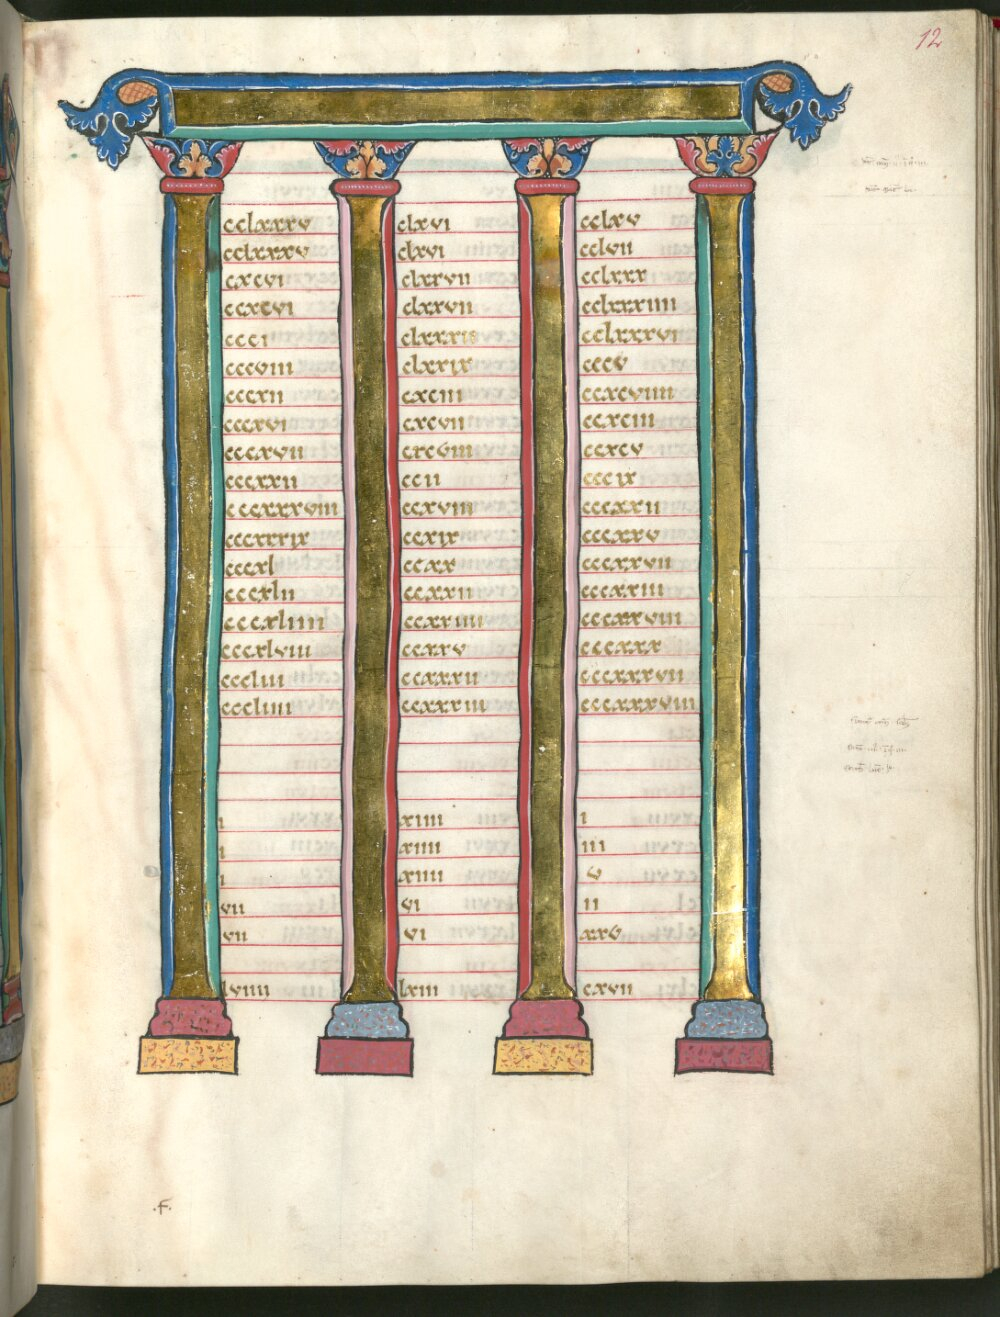 12
cclxxxv clxvi cclxv
cclxxxv clxvi cclvii
cxcvi clxxvii cclxxx
ccxcvi clxxvii cclxxxiiii
ccci cclxxxvi
cccviii clxxix cccv
cccxii cxciii ccxcviiii
cccxvi cxcvii ccxciii
cccxvii ccxcv
cccxxii ccii cccix
cccxxxviii ccxviii cccxxii
cccxxxix ccxix cccxxv
cccxl ccxx cccxxvii
cccxlii ccxxii cccxxiii
cccxliiii ccxxiiii cccxxviii
cccxlviii ccxxv cccxxx
cccliii ccxxxii cccxxxvii
cccliiii ccxxxiii cccxxxviii
i xiiii i
i xiiii iii
i xiiii v
vii vi ii
vii vi xxv
lviiii lxiii cxvii
.f.